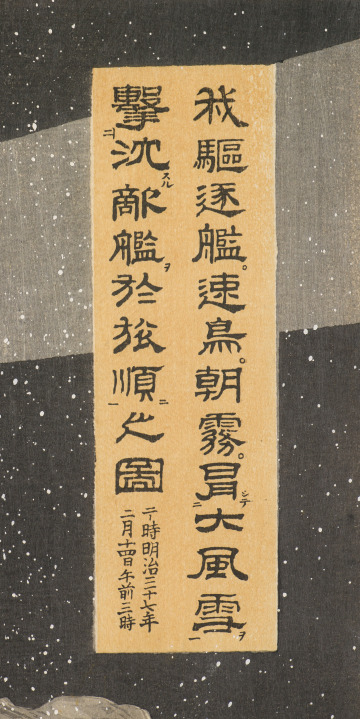 我驅逐艦。速鳥。朝霧。冒シテ二大風雪一ヲ
擊二沈スル敵艦ヲ於旅順一ニ之圖
于時明治三十七年
二月十四日午前三時